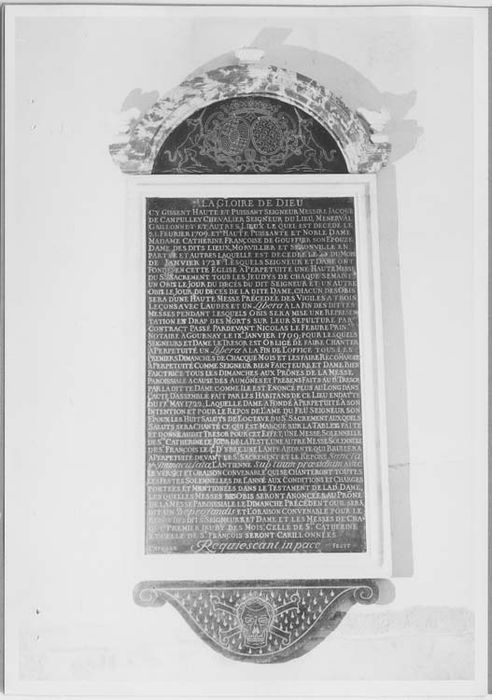 A LA GLOIRE DE DIEU
CY GISSENT HAUTE ET PUISSANT SEIGNEUR MESSIRE JACQUE
DE CANPULLEY CHEVALIER SEIGNEUR DU LIEU, MENERVAL
GAILLONNET ET AUTRES LIEUX LE QUEL EST DECEDÉ LE
FEVRIER 1709. ET HAUTE PUISSANTE ET NOBLE DAME
MADAME CATHERINE FRANÇOISE DE GOUFFIER SON EPOUZE
DAME DES DITS LIEUX, MORVILLIER ET SENONVILLE EN
PARTIE ET AUTRES LAQUELLE EST DECEDÉE LE DU MOIS
DE JANVIER LESQUELS SEIGNEUR ET DAME ONT
FONDÉS EN CETTE EGLISE A PERPETUITE UNE HAUTE MESSE
DU St SACREMENT TOUS LES JEUDYS DE CHAQUE SEMAINE
UN OBIS LE JOUR DU DECES DU DIT SEIGNEUR ET UN AUTRE
OBIS LE JOUR DU DECES DE LA DITE DAME, CHACUN DES OBIS
SERA D'UNE HAUTE MESSE PRECEDÉE DES VIGILES A TROIS
LEÇONS AVEC LAUDES ET UN Libera A LA FIN DES DITTES
MESSES PENDANT LESQUELS OBIS SERA MISE UNE REPRESEN
TATION EN DRAP DES MORTS SUR LEUR SEPULTURE PAR
CONTRACT PASSÉ PARDEVANT NICOLAS LE FEBURE PRIN
NOTAIRE A GOURNAY LE JANVIER 1700, POUR LESQUELS
SEIGNEURS ET DAME LE TRESOR EST OBLIGÉ DE FAIRE CHANTER
A PERPETUITE UN Libera A LA FIN DE L'OFFICE TOUS LES
PREMIERS DIMANCHES DE CHACQUE MOIS ET LES FAIRE RECOMANDER
A PERPETUITÉ COMME SEIGNEUR BIEN FAICTEUR ET DAME BIEN
FAICTRICE TOUS LES DIMANCHES AUX PRÔNES DE LA MESSE
PAROISSIALE A CAUSE DES AUMÔNES ET PRESENTS FAITS AU D. TRESOR
PAR LA DITTE DAME COMME ILS EST ENONCÉ PLUS AU LONG DANS
L'ACTE D'ASSEMBLE FAIT PAR LES HABITANS DE CE LIEU EN DATTE
DU MAY 1729, LAQUELLE DAME A FONDÉ A PERPETUITE A SON
INTENTION ET POUR LE REPOS DE L'AME DU FEU SEIGNEUR SON
EPOUX LES HUIT SALUTS DE L'OCTAVE DU St SACREMENT AUXQUELS
SALUTS SERA CHANTÉ CE QUI EST MARQUÉ SUR LA TABLE
ET DONNE AUDIT TRESOR POUR CET EFFET, UNE MESSE SOLENNELLE
DE Ste CATHERINE LE JOUR DE LA FESTE, UNE AUTRE MESSE SOLENNELLE
DE St FRANCOIS LE 4e D'8BRE, UNE LAMPE ARDENTE QUI BRULERA
A PERPETUITÉ DEVANT LE St SACREMENT ET LE REPONS Sancta
et Immaculata, L'ANTIENNE Sub tuum præsidium AVEC
LE VERSET ET ORAISON CONVENABLE QUI SE CHANTERONT TOUTES
LES FESTES SOLENNELLES DE L'ANNÉE AUX CONDITIONS ET CHARGES
PORTÉES ET MENTIONÉES DANS LE TESTAMENT DE LA D. DAME,
LES QUELLES MESSES ET OBIS SERONT ANONCÉES AU PRÔNE
DE LA MESSE PAROISSIALE LE DIMANCHE PRECEDENT OU IL SERA
DIT UN De profundis ET L'ORAISON CONVENABLE POUR LE
REPOS DES DITS SEIGNEUR ET DAME ET LES MESSES DE CHA
PREMIER JEUDY DES MOIS, CELLE DE Ste CATHERINE
ET CELLE DE St FRANÇOIS SERONT CARILLONNÉES.
Requiescant in pace FECIT